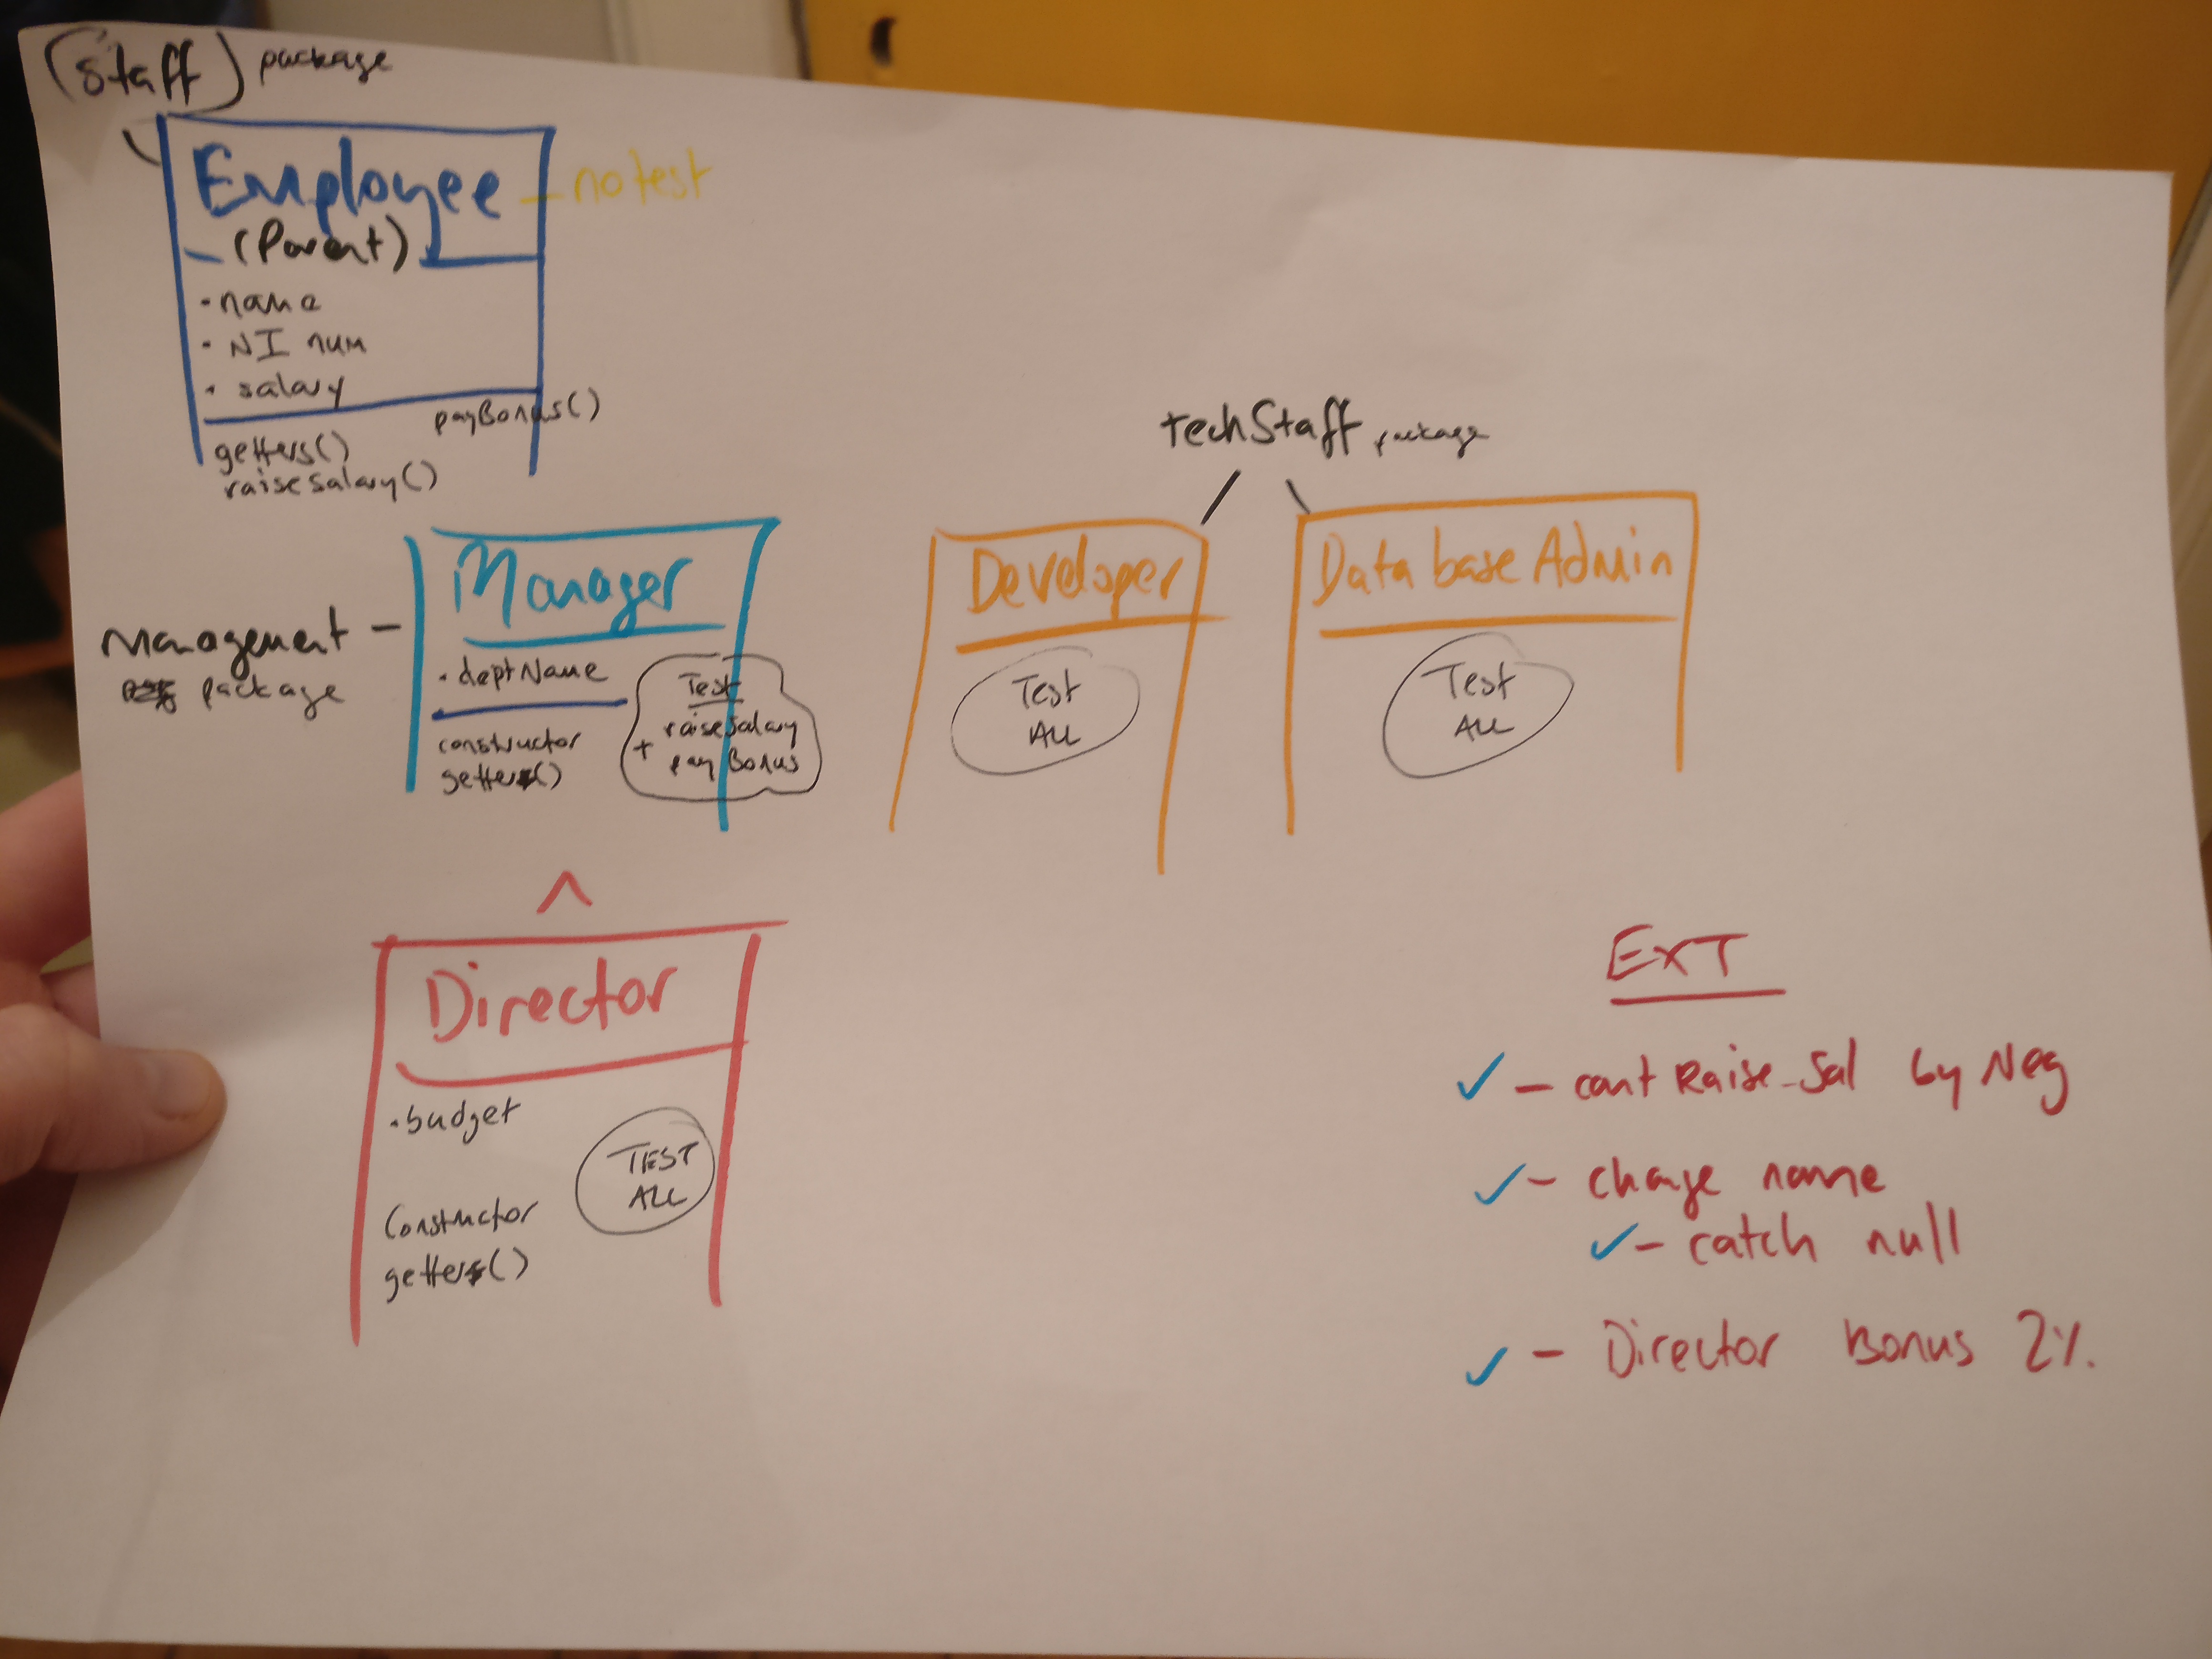 (staff) package
Employee
- no test
(Parent)
• name
• NI num
• salary
payBonus()
getters()
raiseSalary()
techStaff package
Management -
package
Manager
• deptName
constructor
getters()
Test
raiseSalary
+ pay Bonus
Developer
Test
ALL
Data base Admin
Test
ALL
Director
• budget
TEST
ALL
Constructor
getters()
EXT
✓ - cant Raise_Sal by Neg
✓ - change name
✓ - catch null
✓ - Director Bonus 2%.